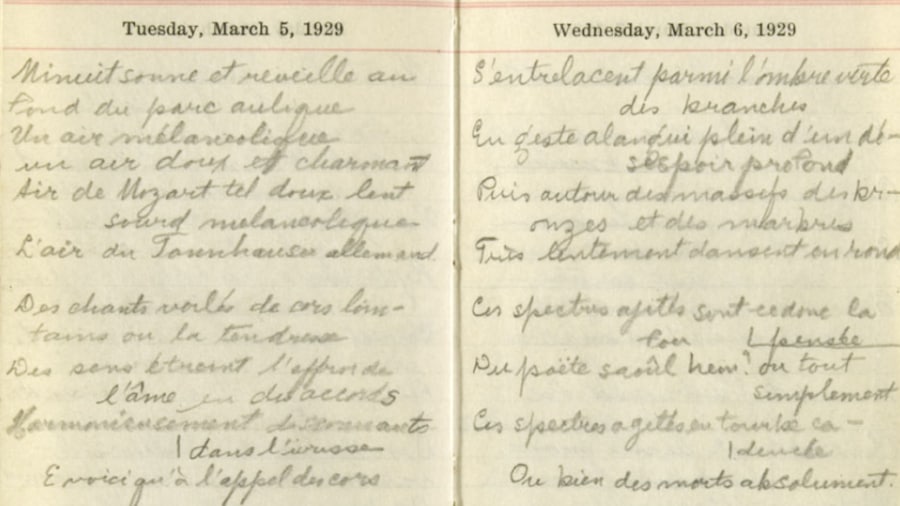 Tuesday, March 5, 1929
Minuit sonne et reveille au
fond du parc aulique
Un air mélancolique
un air doux et charmant
Air de Mozart tel doux lent
sourd mélancolique
L'air du Tannhauser allemand.
Des chants voilés de cors loin-
tains ou la tendresse
Des sens étreint l'effroi de
l'âme en des accords
Harmonieusement dissonnants
dans l'ivresse
E voici qu'à l'appel des cors
Wednesday, March 6, 1929
S'entrelacent parmi l'ombre verte
des branches
En geste alangui plein d'un dé-
sespoir profond
Puis autour des massifs des br-
onzes et des marbres
Très lentement dansent en rond
Ces spectres agités sont-ce donc la
pensée
Du poëte saoûl hein? ou tout
simplement
Ces spectres agités en tourbe ca-
dencée
Ou bien des morts absolument.